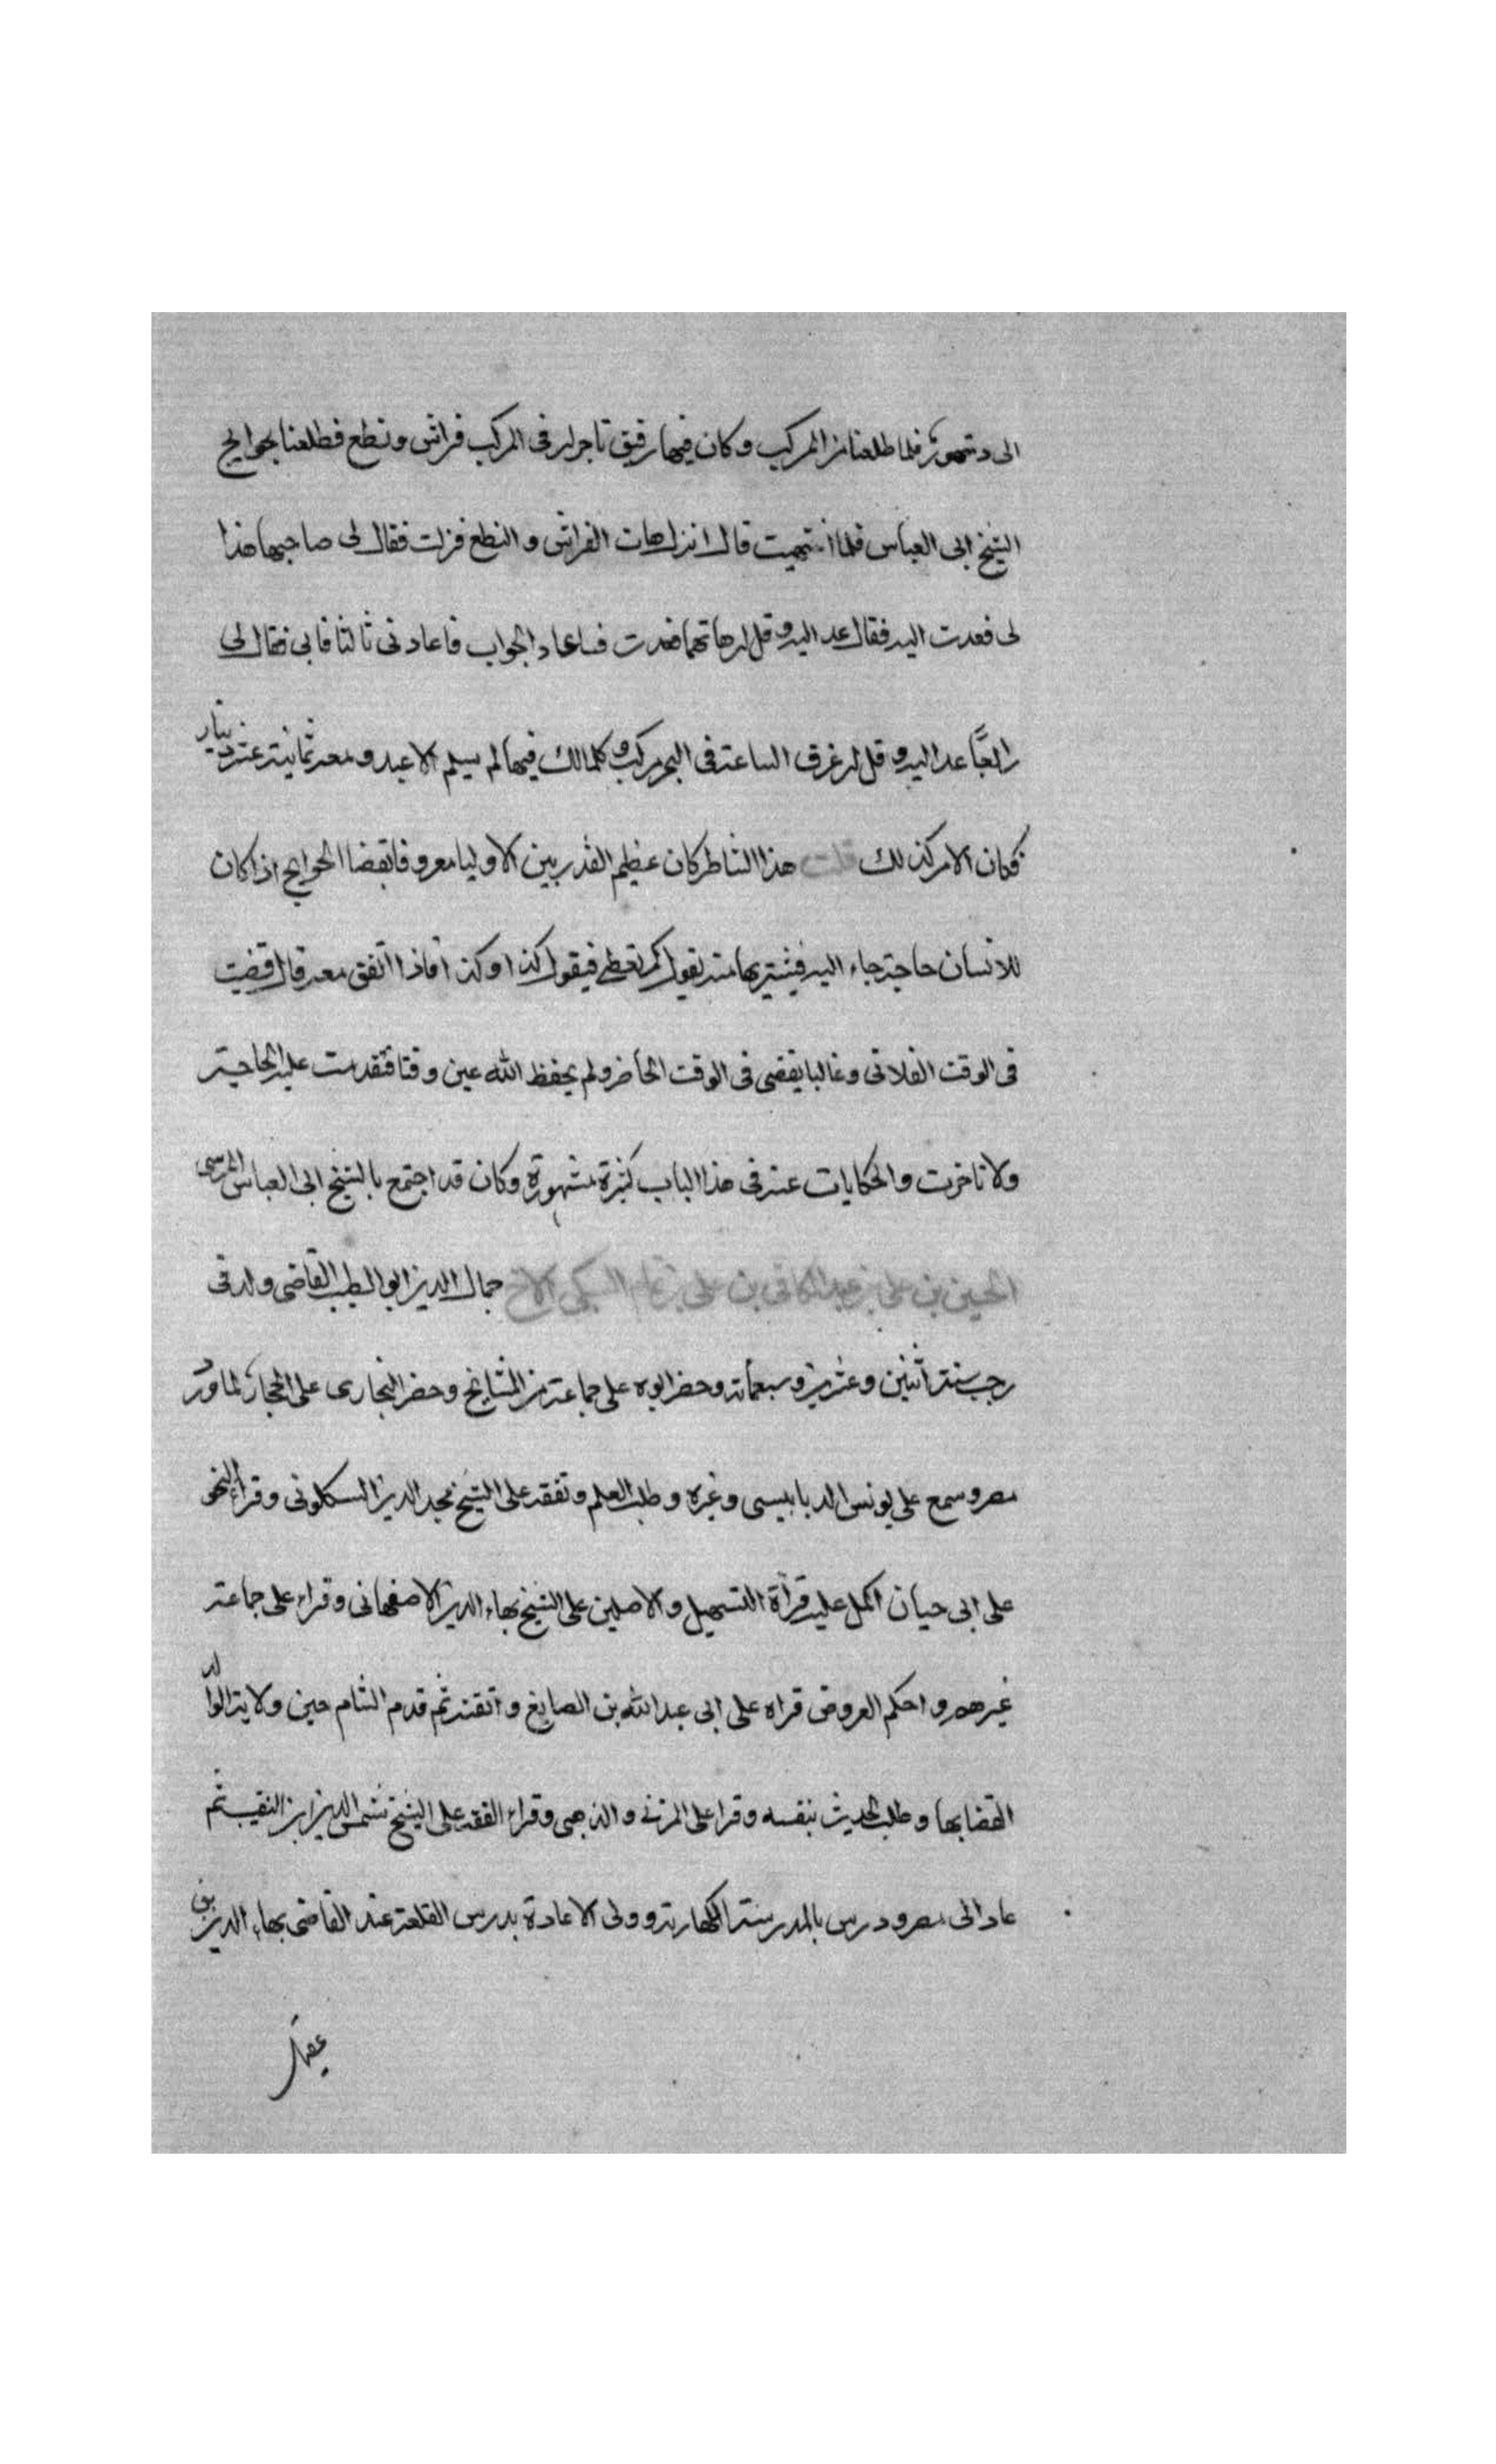 الى دمنهور فلما طلعنا من المركب وكان فيها رفيق تاجر له في المركب فراش ونطع فطلعنا بحوايج
الشيخ ابى العباس فلما انتهيت قال انزل هات الفراش والنطع فنزلت فقال لى صاحبها هذا
لى فعدت اليه فقال عد اليه وقل له هاتهما فعدت فاعاد الجواب فاعادنى ثالثا فابى فقال لى
رابعًا عد اليه وقل له غرق الساعة فى البحر مركب وكلما لك فيها لم يسلم الا عبد ومعه ثمانية عشر دينار
فكان الامر كذلك قلت هذا الشاطر كان عظيم القدر بين الاوليا معروفا بقضا الحوايج اذا كان
للانسان حاجة جاء اليه فيشتريها منه يقول كم تعطى فيقول كذا وكذا فاذا اتفق معه قال قضيت
فى الوقت الفلانى وغالبا يقضى فى الوقت الحاضر ولم يحفظ الله عين وقتا فتقدمت عليه الحاجة
ولا تاخرت والحكايات عنه فى هذا الباب كثيرة مشهورة وكان قد اجتمع بالشيخ ابى العباس المرسى
الحسين بن على بن عبد الكافى بن على بن تمام السبكى الاخ جمال الدين ابو الطيب القاضى ولد فى
رجب سنة اثنين وعشرين وسبعماية وحضر ابوه على جماعة من المشايخ وحضر البخارى على الحجار لما ورد
مصر وسمع على يونس الدبابيسى وغيره وطلب العلم وتفقه على الشيخ مجد الدين السنكلونى وقراء النحو
على ابى حيان اكمل عليه قراة التسهيل والاصلين على الشيخ بهاء الدين الاصفهانى وقراء على جماعة
غيرهم واحكم العروض قراه على ابى عبد الله بن الصايغ واتقنه ثم قدم الشام حين ولاية الوالد
القضا بها وطلب الحديث بنفسه وقرا على المزنى والذهبى وقراء الفقه على الشيخ شمس الدين ابن النقيب ثم
عاد الى مصر ودرس بالمدرسة الكهارية وولى الاعادة بدرس القلعة عند القاضى بهاء الدين بن
عقيل